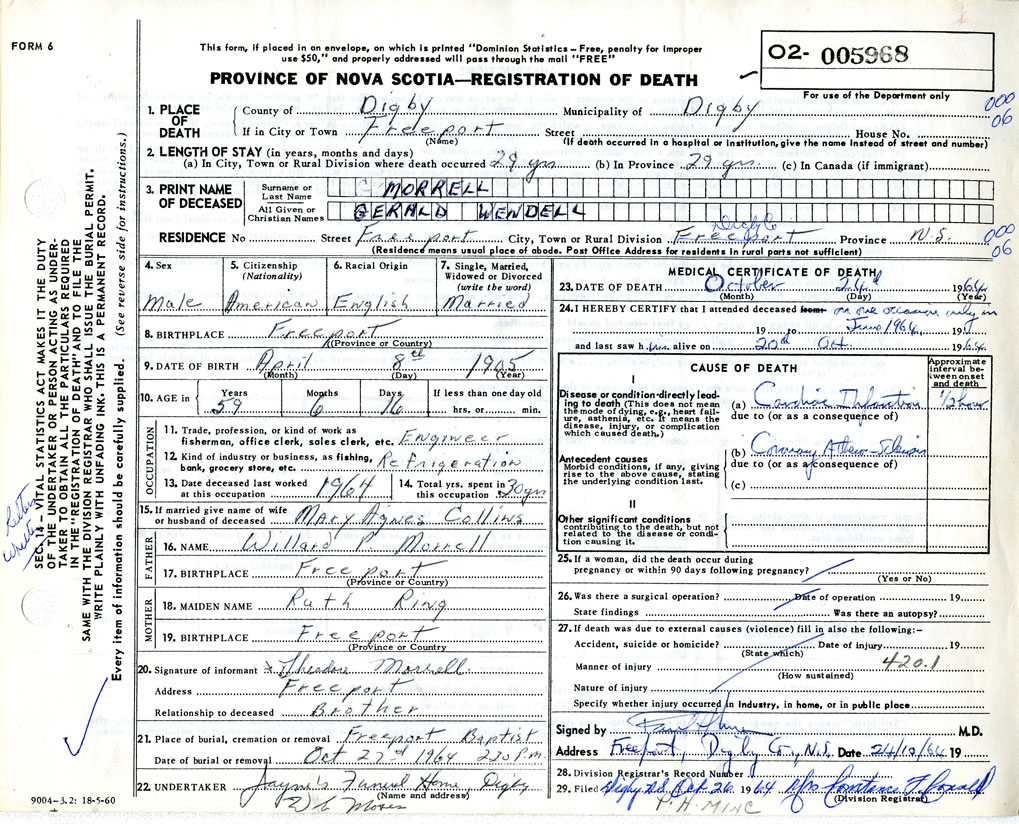 FORM 6
This form, if placed in an envelope, on which is printed "Dominion Statistics – Free, penalty for improper
use $50," and properly addressed will pass through the mail "FREE"
PROVINCE OF NOVA SCOTIA—REGISTRATION OF DEATH
02- 005968
For use of the Department only
000
06
1. PLACE OF DEATH
County of Digby Municipality of Digby
If in City or Town Freeport Street House No.
(Name) (If death occurred in a hospital or institution, give the name instead of street and number)
2. LENGTH OF STAY (in years, months and days)
(a) In City, Town or Rural Division where death occurred 29 yrs (b) In Province 29 yrs. (c) In Canada (if immigrant)
3. PRINT NAME OF DECEASED
Surname or Last Name MORRELL
All Given or Christian Names GERALD WENDELL
Digby Co
RESIDENCE No Street Freeport City, Town or Rural Division Freeport Province N.S.
000
06
(Residence means usual place of abode. Post Office Address for residents in rural parts not sufficient)
4. Sex
Male
5. Citizenship (Nationality)
American
6. Racial Origin
English
7. Single, Married, Widowed or Divorced (write the word)
Married
8. BIRTHPLACE Freeport
(Province or Country)
9. DATE OF BIRTH April 8th 1905
(Month) (Day) (Year)
10. AGE in Years Months Days If less than one day old
59 6 16 hrs. or min.
OCCUPATION
11. Trade, profession, or kind of work as
fisherman, office clerk, sales clerk, etc. Engineer
12. Kind of industry or business, as fishing,
bank, grocery store, etc. Refrigeration
13. Date deceased last worked at this occupation 1964
14. Total yrs. spent in this occupation 30 yrs
15. If married give name of wife
or husband of deceased Mary Agnes Collins
FATHER
16. NAME Willard P. Morrell
17. BIRTHPLACE Freeport
(Province or Country)
MOTHER
18. MAIDEN NAME Ruth Ring
19. BIRTHPLACE Freeport
(Province or Country)
20. Signature of informant Theodore Morrell
Address Freeport
Relationship to deceased Brother
21. Place of burial, cremation or removal Freeport Baptist
Date of burial or removal Oct 27d 1964 2:30 P.M.
22. UNDERTAKER Jayne's Funeral Home, Digby
(Name and address)
9004-3.2: 18-5-60
MEDICAL CERTIFICATE OF DEATH
23. DATE OF DEATH October 24d 1964
(Month) (Day) (Year)
24. I HEREBY CERTIFY that I attended deceased from on one occasion only in
19 to June 1964, 19
and last saw him alive on 20th Oct. 1964
CAUSE OF DEATH
Approximate interval between onset and death
I
Disease or condition directly leading to death (This does not mean
the mode of dying, e.g., heart failure, asthenia, etc. It means the
disease, injury, or complication which caused death.)
(a) Cardiac Infarction 1/2 hour
due to (or as a consequence of)
Antecedent causes
Morbid conditions, if any, giving
rise to the above cause, stating
the underlying condition last.
(b) Coronary
due to (or as a consequence of)
(c)
II
Other significant conditions
contributing to the death, but not
related to the disease or condition causing it.
25. If a woman, did the death occur during
pregnancy or within 90 days following pregnancy?
(Yes or No)
26. Was there a surgical operation? Date of operation 19
State findings Was there an autopsy?
27. If death was due to external causes (violence) fill in also the following:–
Accident, suicide or homicide? Date of injury 19
(State which)
420.1
Manner of injury
(How sustained)
Nature of injury
Specify whether injury occurred in industry, in home, or in public place
Signed by M.D.
Address Freeport, Digby Co., N.S. Date 24/10/64 19
28. Division Registrar's Record Number
29. Filed Digby N.S. Oct 26 1964 Mrs Constance F.
(Division Registrar)
SEC. 14 – VITAL STATISTICS ACT MAKES IT THE DUTY
OF THE UNDERTAKER OR PERSON ACTING AS UNDERTAKER TO OBTAIN ALL THE PARTICULARS REQUIRED
IN THE "REGISTRATION OF DEATH" AND TO FILE THE
SAME WITH THE DIVISION REGISTRAR WHO SHALL ISSUE THE BURIAL PERMIT.
WRITE PLAINLY WITH UNFADING INK. THIS IS A PERMANENT RECORD.
Every item of information should be carefully supplied. (See reverse side for instructions.)